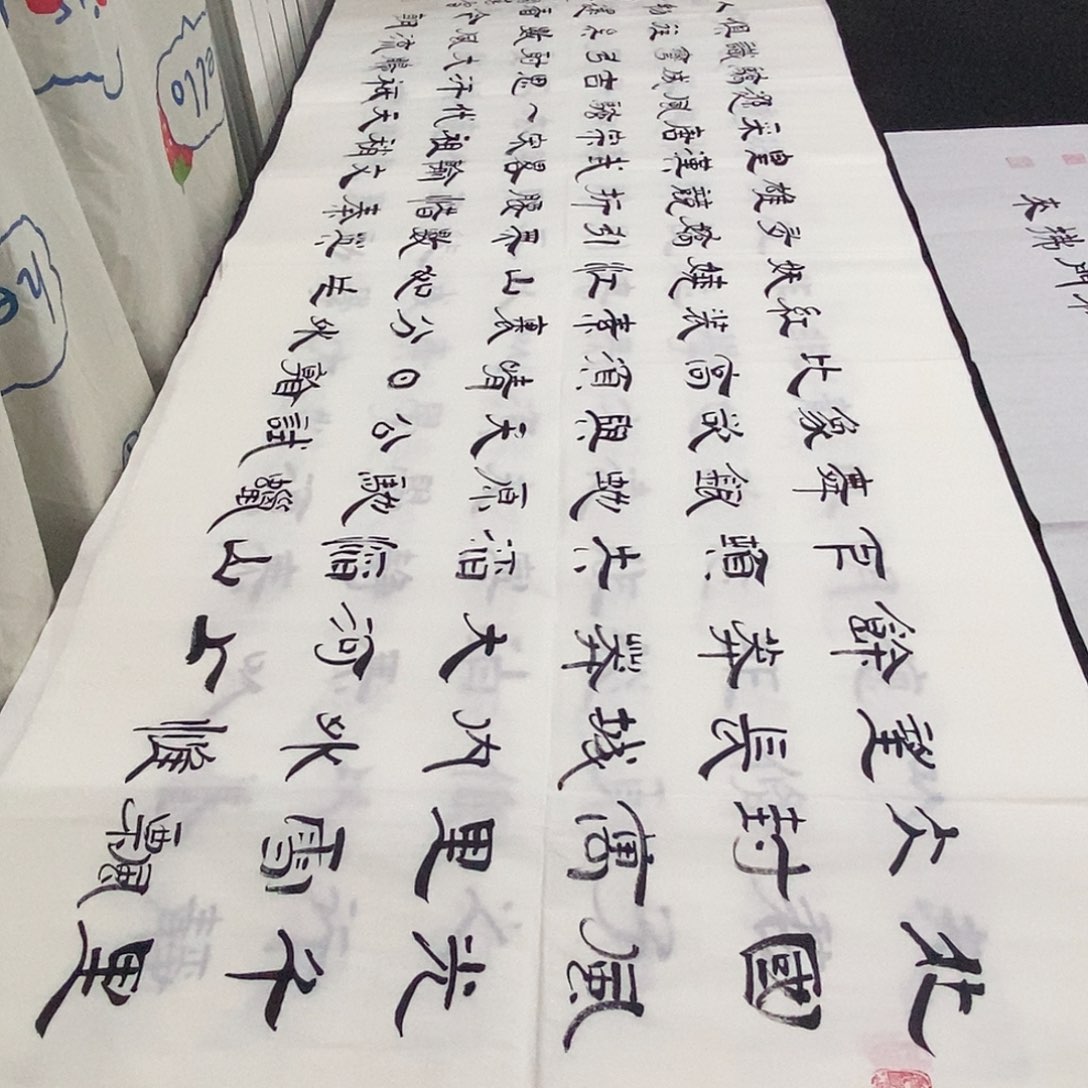 北國風光千里
冰封萬里雪飄
望長城內外惟
餘莽莽大河上
下頓失滔滔山
舞銀蛇原馳蠟
象欲與天公試
比高須晴日看
紅裝素裹分外
妖嬈江山如此
多嬌引無數英
雄競折腰惜秦
皇漢武略輸文
采唐宗宋祖稍
遜風騷一代天
驕成吉思汗祗
識彎弓射大鵰
俱往矣數風流
人物還看今朝
ello